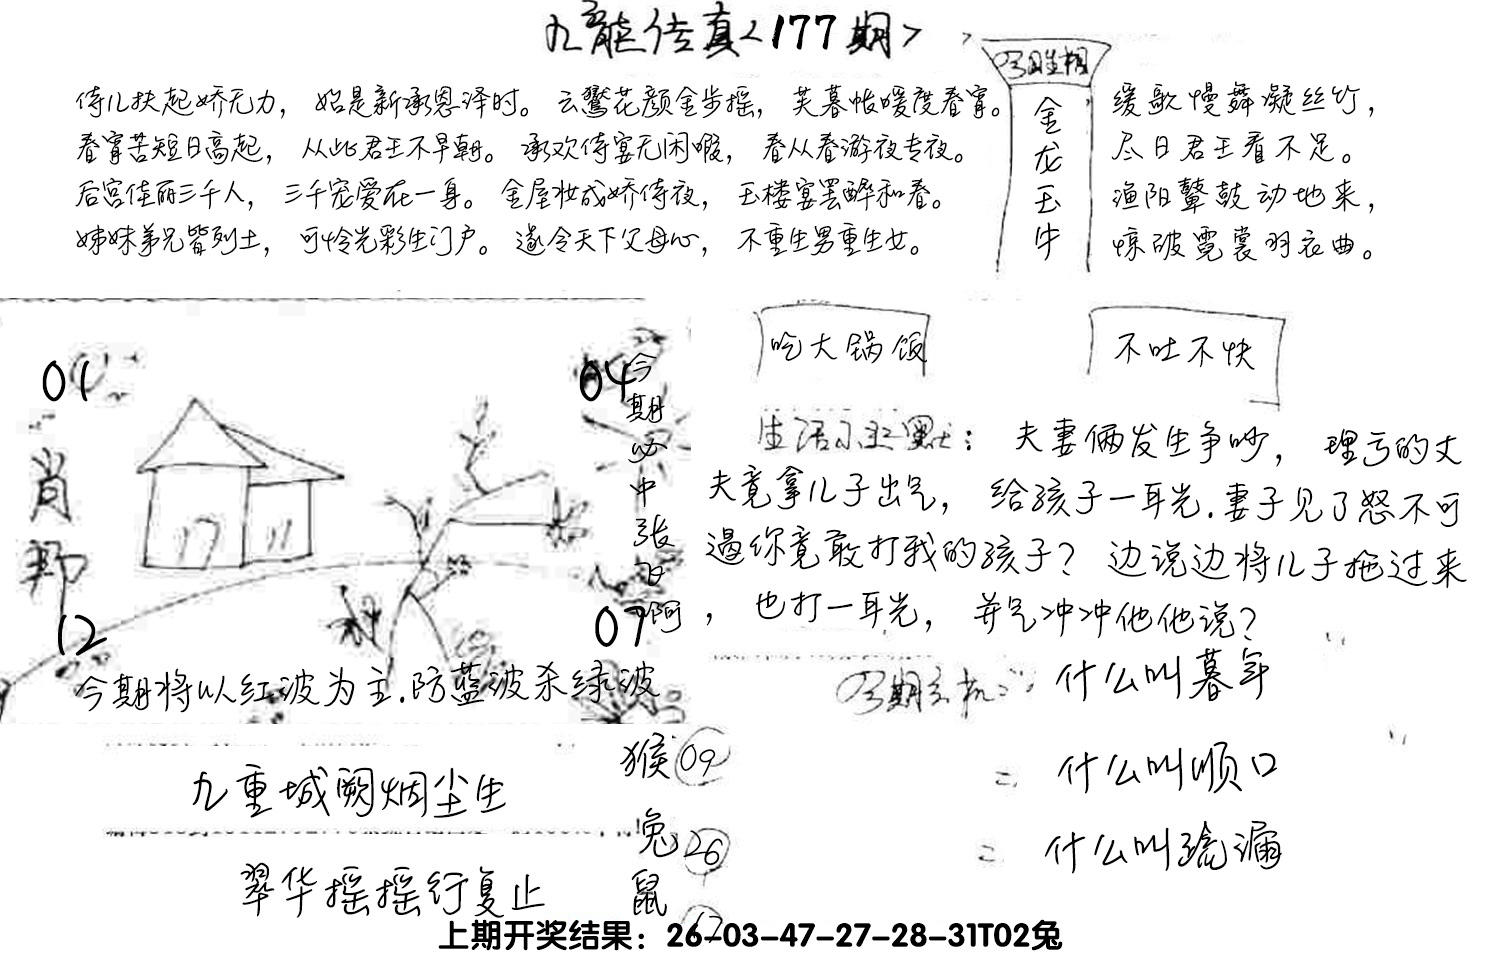 九龍传真<177期>
今日生相
侍儿扶起娇无力，始是新承恩泽时。云鬓花颜金步摇，芙蓉帐暖度春宵。
春宵苦短日高起，从此君王不早朝。承欢侍宴无闲暇，春从春游夜专夜。
后宫佳丽三千人，三千宠爱在一身。金屋妆成娇侍夜，玉楼宴罢醉和春。
姊妹弟兄皆列土，可怜光彩生门户。遂令天下父母心，不重生男重生女。
金龙玉牛
缓歌慢舞凝丝竹，
尽日君王看不足。
渔阳鼙鼓动地来，
惊破霓裳羽衣曲。
01
04
肖
12
07
今期必中张飞啊
今期将以红波为主.防蓝波杀绿波
吃大锅饭
不吐不快
生活小幽默：夫妻俩发生争吵，理亏的丈
夫竟拿儿子出气，给孩子一耳光.妻子见了怒不可
遏你竟敢打我的孩子？边说边将儿子拖过来
，也打一耳光，并气冲冲他他说？
今期玄机：什么叫暮年
=什么叫顺口
=什么叫疏漏
九重城阙烟尘生
翠华摇摇行复止
猴09
兔26
鼠
上期开奖结果：26-03-47-27-28-31T02兔